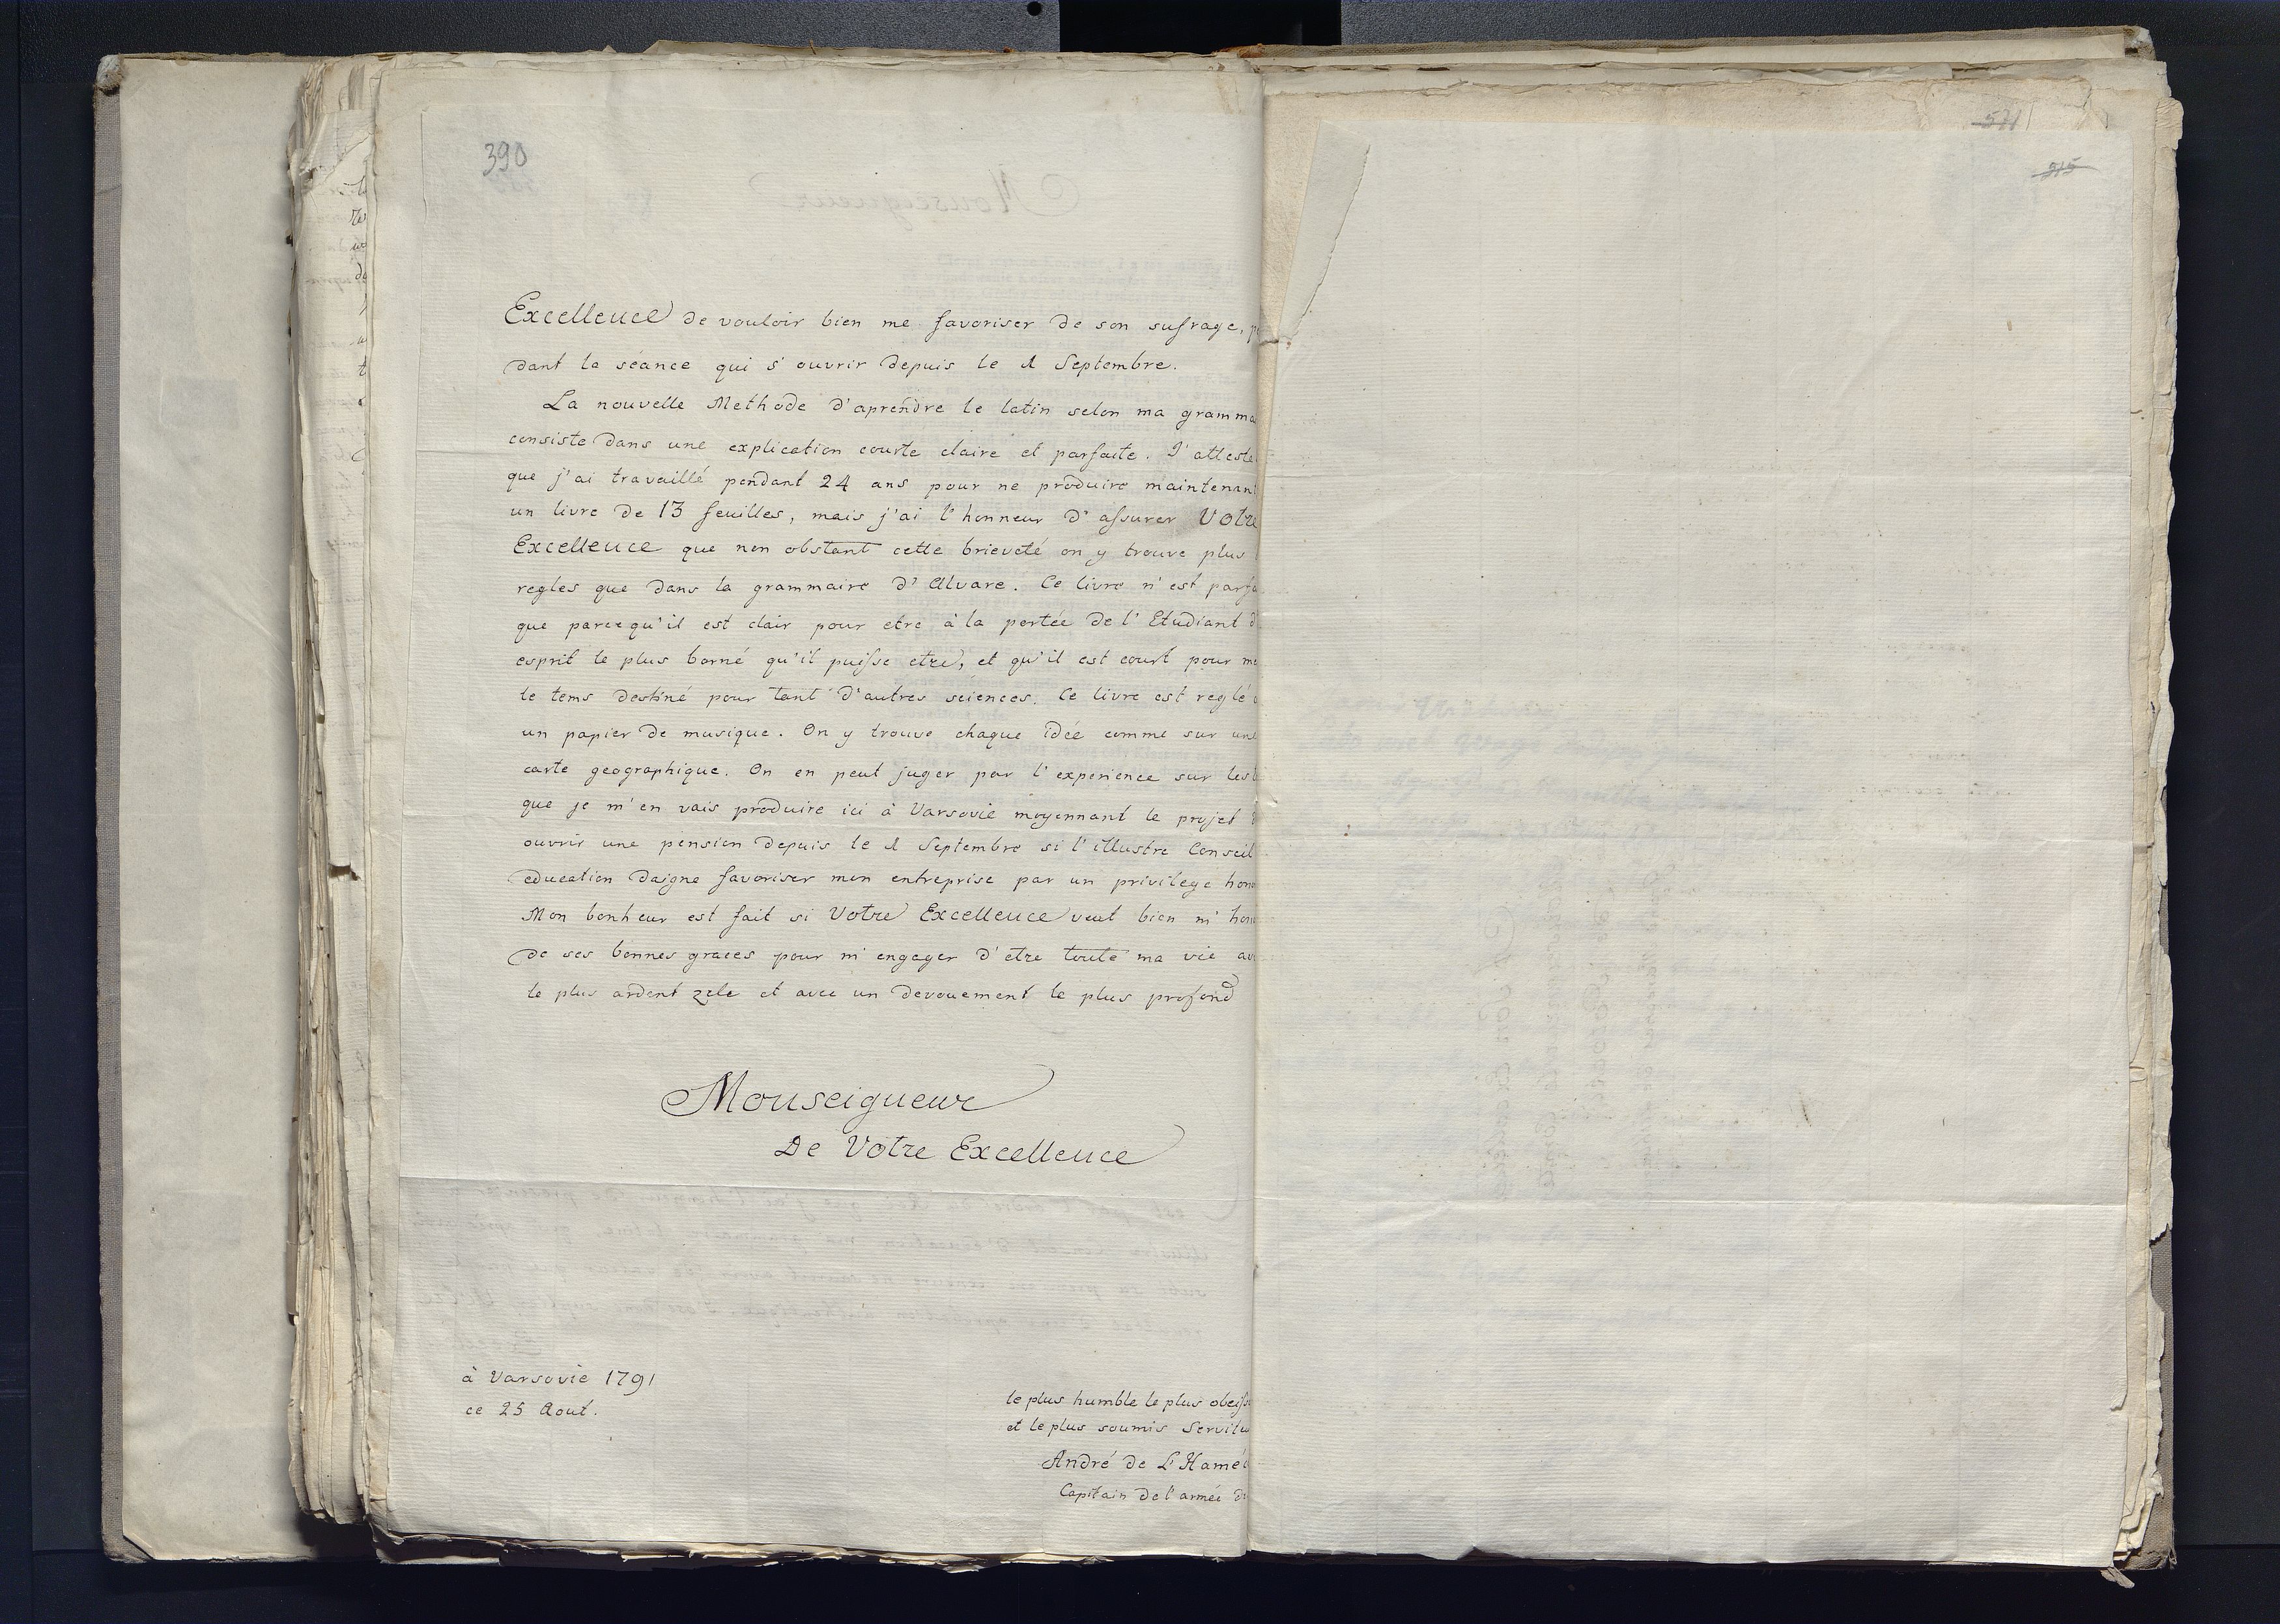 390
Excellence de vouloir bien me favoriser de son sufrage,
dant la séance qui s'ouvrir depuis le 1 Septembre.
La nouvelle Methode d'aprendre le latin selon ma gramma
consiste dans une explication courte claire et parfaite. J'atteste
que j'ai travaillé pendant 24 ans pour ne produire maintenant
un livre de 13 feuilles, mais j'ai l'honneur d'assurer Votre
Excellence que non obstant cette brieveté on y trouve plus
regles que dans la grammaire d'Alvare. Ce livre n'est parfa
que parcequ'il est clair pour etre à la portée de l'Etudiant d
esprit le plus borné qu'il puisse etre, et qu'il est court pour me
le tems destiné pour tant d'autres sciences. Ce livre est reglé
un papier de musique. On y trouve chaque idée comme sur une
carte geographique. On en peut juger par l'experience sur les
que je m'en vais produire ici à Varsovie moyennant le projet d
ouvrir une pension depuis le 1 Septembre si l'illustre Conseil
education daigne favoriser mon entreprise par un privilege hono
Mon bonheur est fait si Votre Excellence veut bien m'hon
de ses bonnes graces pour m'engager d'etre toute ma vie av
le plus ardent zele et avec un devouement le plus profond
Monseigneur
De Votre Excellence
à Varsovie 1791
ce 25 Aout.
le plus humble le plus obeiss
et le plus soumis Serviteu
André de L'Hamé
Capitain de l'armée du
511
515